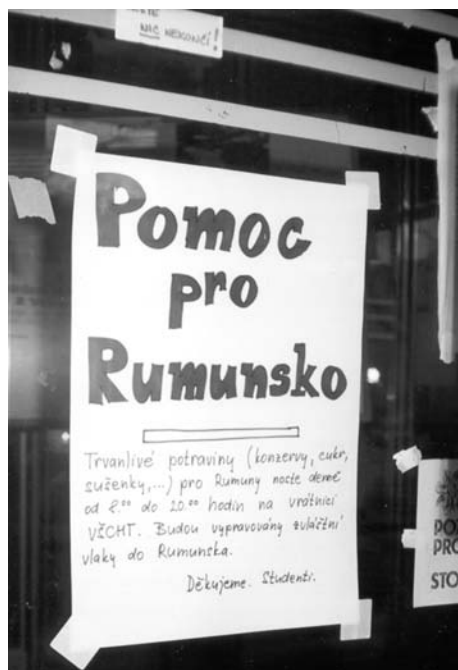 NIC NEKONČÍ!
Pomoc
pro
Rumunsko
Trvanlivé potraviny (konzervy, cukr,
sušenky,...) pro Rumuny noste denně
od 8.⁰⁰ do 20.⁰⁰ hodin na vrátnici
VŠCHT. Budou vypravovány zvláštní
vlaky do Rumunska.
Děkujeme. Studenti.
PRO
STO